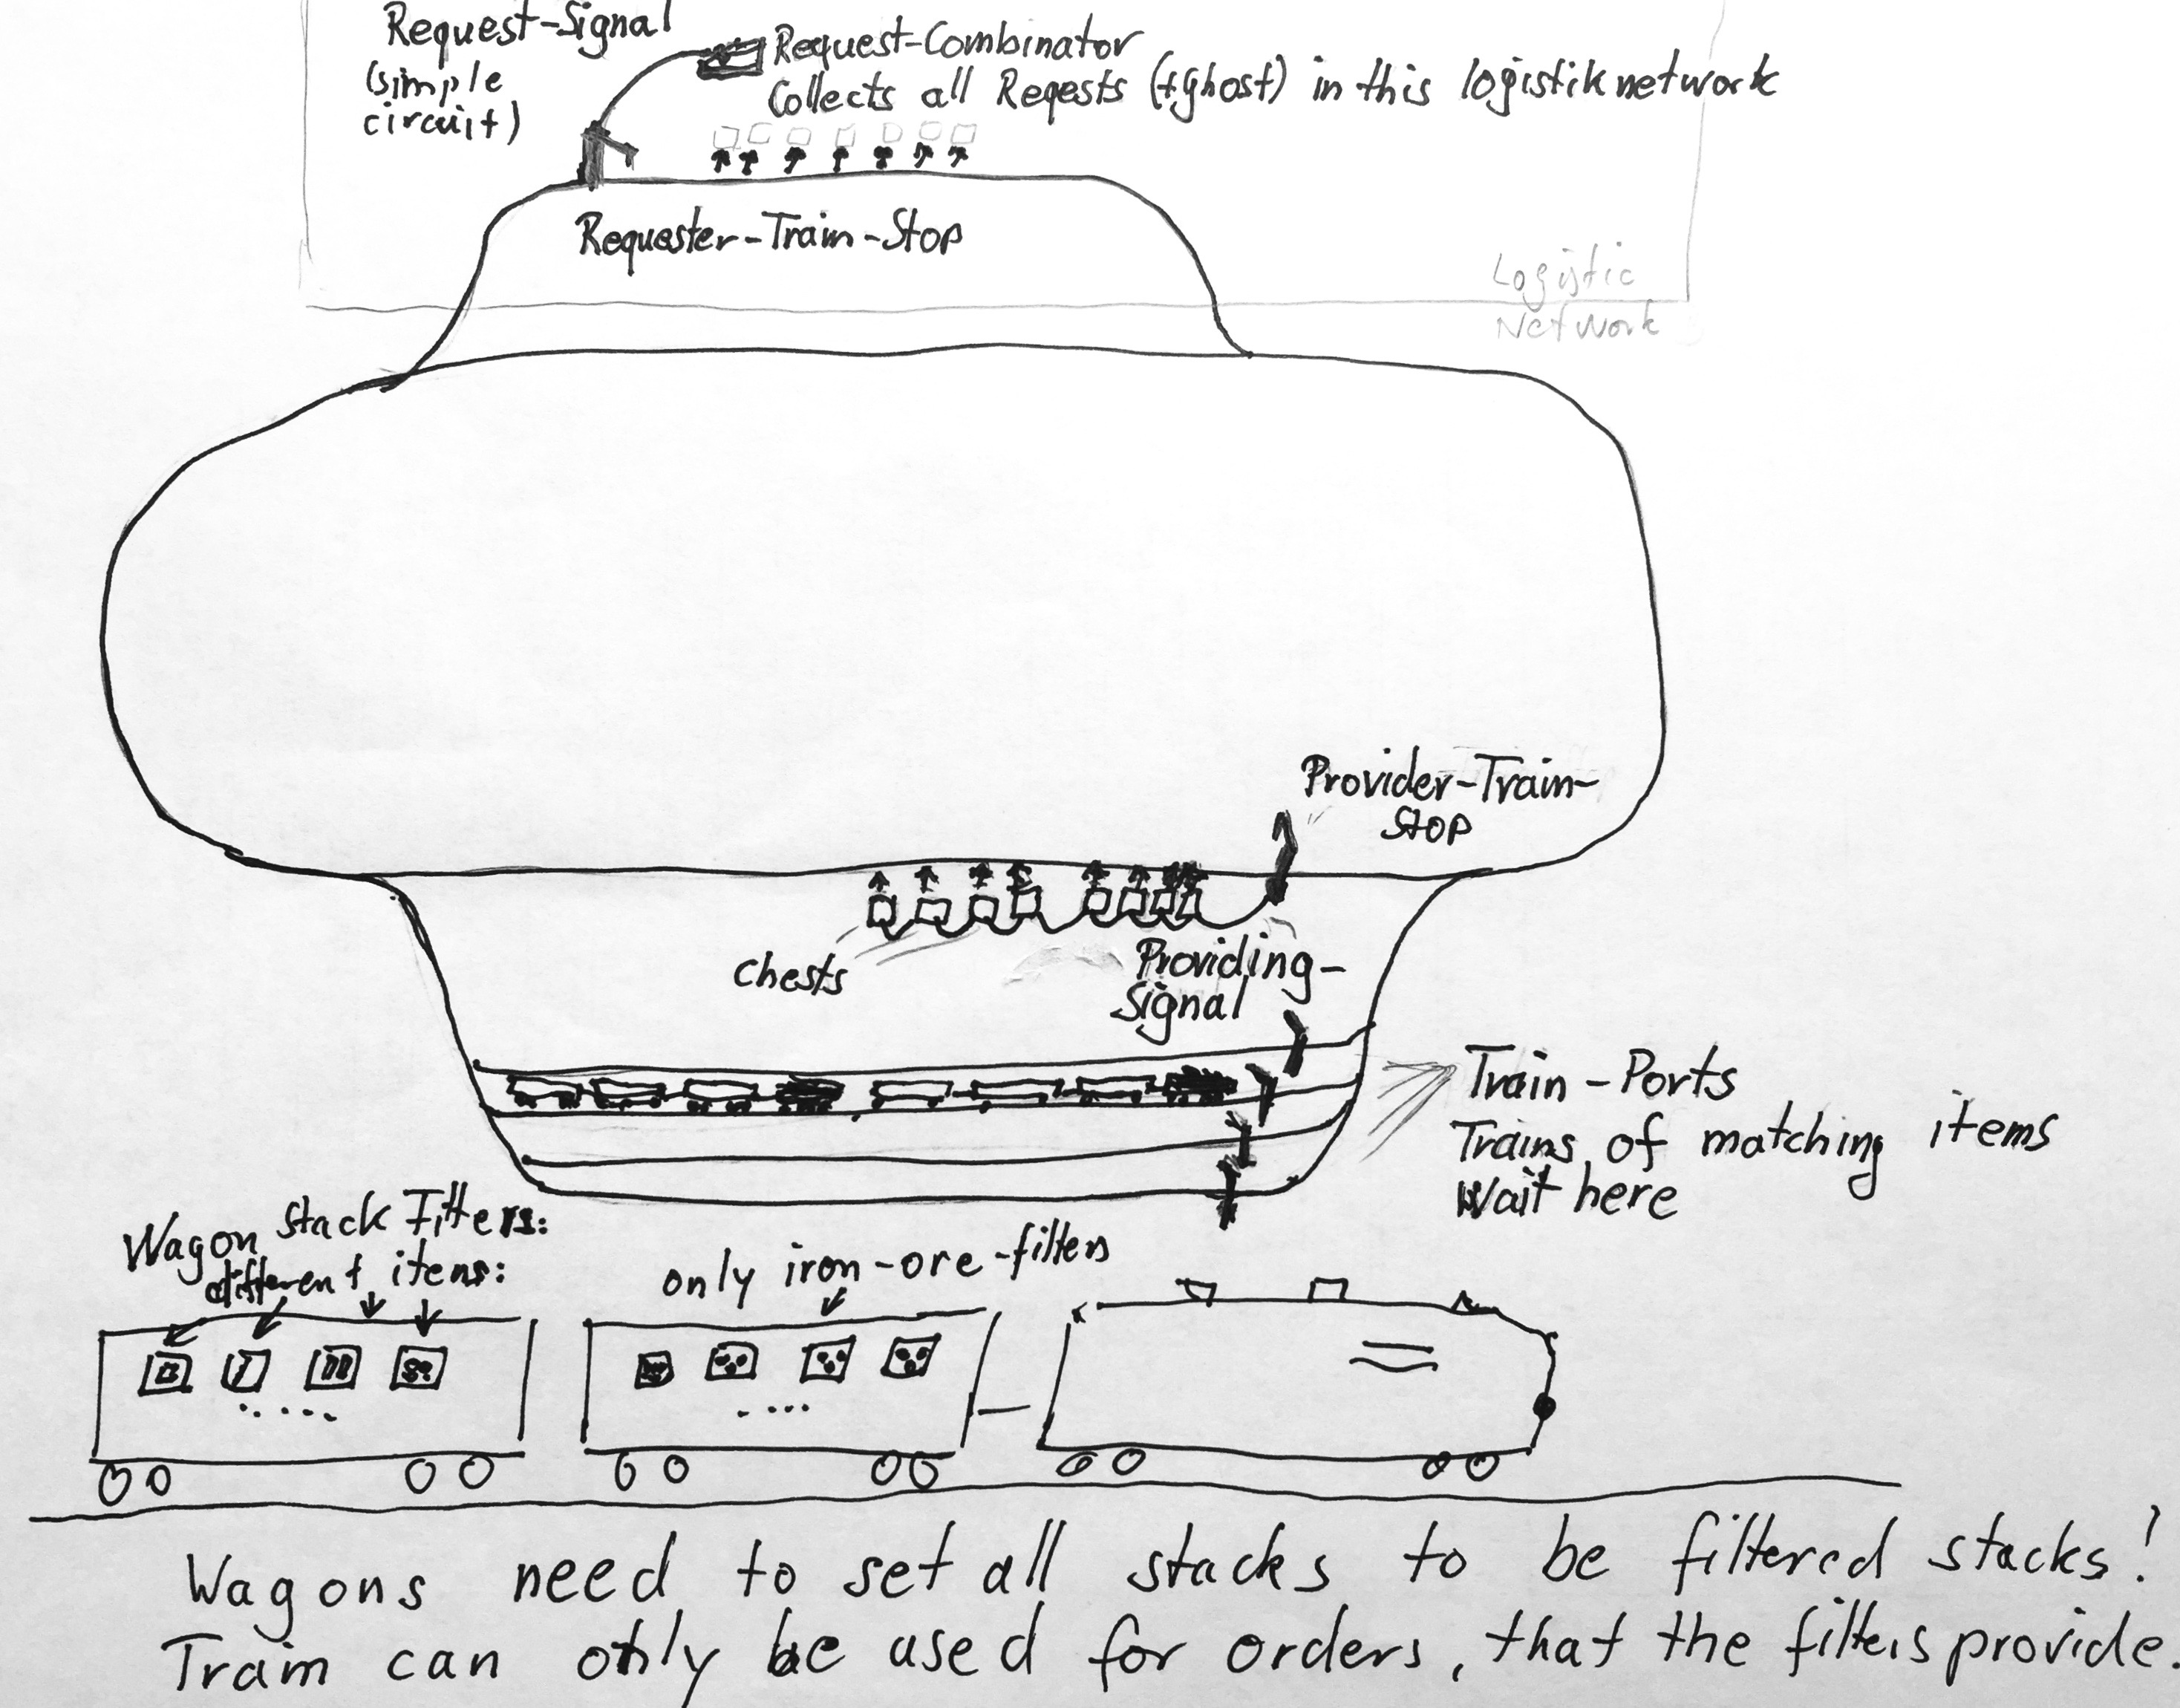 Request-Signal
(simple
circuit)
Request-Combinator
Collects all Reqests (+ghost) in this logistik network
Requester-Train-Stop
Logistic
Network
Provider-Train-
Stop
Chests
Providing-
Signal
Train-Ports
Trains of matching items
Wait here
Wagon Stack Filters:
different items:
only iron-ore-filters
Wagons need to set all stacks to be filtered stacks!
Train can only be used for orders, that the filters provide.